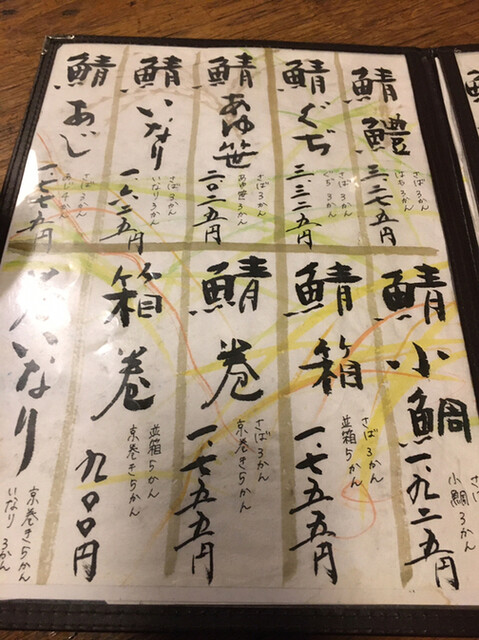 鯖鱧
さば3かん
はも3かん
三、二七五円
鯖ぐぢ
さば3かん
ぐぢ3かん
三、三二五円
鯖あゆ笹
さば3かん
あゆ笹3かん
二、〇二五円
鯖いなり
さば3かん
いなり3かん
一、六二五円
鯖あじ
さば3かん
一、七七五円
鯖小鯛
小鯛3かん
一、九二五円
鯖箱
さば3かん
並箱5かん
一、七五五円
鯖巻
さば3かん
京巻き5かん
一、七五五円
箱巻
並箱5かん
京巻き5かん
九〇〇円
巻いなり
京巻き5かん
いなり3かん